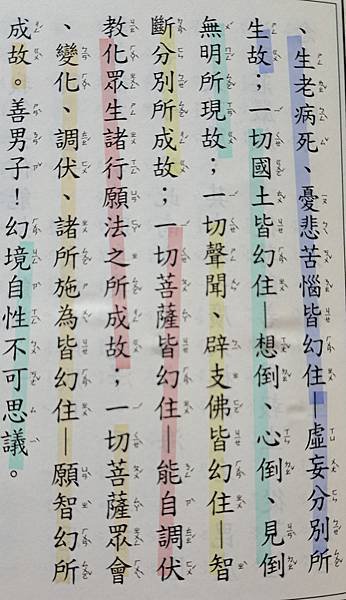 、生老病死、憂悲苦惱皆幻住—虛妄分別所
生故；一切國土皆幻住—想倒、心倒、見倒
無明所現故；一切聲聞、辟支佛皆幻住—智
斷分別所成故；一切菩薩皆幻住—能自調伏
教化眾生諸行願法之所成故；一切菩薩眾會
、變化、調伏、諸所施為皆幻住—願智幻所
成故。善男子！幻境自性不可思議。